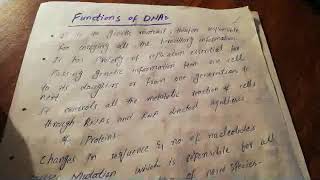 Functions of DNA:
It is the genetic material, therefore responsible
for carrying all the hereditary information
It has property of replication essential for
Passing genetic information from one cell
to its daughters or from one generation to
next
It controls all the metabolic reaction of cells
through RNAs and RNA directed synthesis
of Proteins
Changes in sequence & no. of nucleotides
Mutation which is responsible for all
of new species